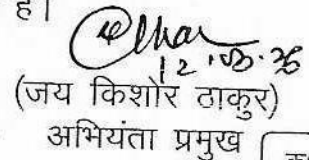 है।
12.03.26
(जय किशोर ठाकुर)
अभियंता प्रमुख